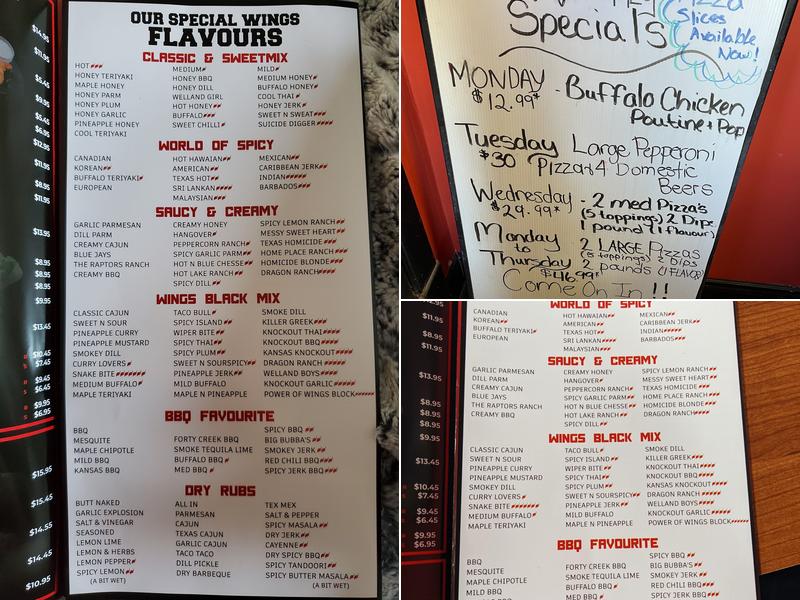 $14.95
$11.95
$5.45
$9.95
$5.45
$6.95
$12.95
$11.95
$8.95
$11.95
$13.95
$8.95
$8.95
$8.95
$9.95
$13.45
$10.45
$7.45
$9.45
$6.45
$9.95
$6.95
$15.95
$15.45
$14.55
$14.45
$10.95
OUR SPECIAL WINGS
FLAVOURS
CLASSIC & SWEETMIX
HOT MEDIUM MILD
HONEY TERIYAKI HONEY BBQ MEDIUM HONEY
MAPLE HONEY HONEY DILL BUFFALO HONEY
HONEY PARM WELLAND GIRL COOL THAI
HONEY PLUM HOT HONEY HONEY JERK
HONEY GARLIC BUFFALO SWEET N SWEAT
PINEAPPLE HONEY SWEET CHILI SUICIDE DIGGER
COOL TERIYAKI
WORLD OF SPICY
CANADIAN HOT HAWAIIAN MEXICAN
KOREAN AMERICAN CARIBBEAN JERK
BUFFALO TERIYAKI TEXAS HOT INDIAN
EUROPEAN SRI LANKAN BARBADOS
MALAYSIAN
SAUCY & CREAMY
GARLIC PARMESAN CREAMY HONEY SPICY LEMON RANCH
DILL PARM HANGOVER MESSY SWEET HEART
CREAMY CAJUN PEPPERCORN RANCH TEXAS HOMICIDE
BLUE JAYS SPICY GARLIC PARM HOME PLACE RANCH
THE RAPTORS RANCH HOT N BLUE CHEESE HOMICIDE BLONDE
CREAMY BBQ HOT LAKE RANCH DRAGON RANCH
SPICY DILL
WINGS BLACK MIX
CLASSIC CAJUN TACO BULL SMOKE DILL
SWEET N SOUR SPICY ISLAND KILLER GREEK
PINEAPPLE CURRY WIPER BITE KNOCKOUT THAI
PINEAPPLE MUSTARD SPICY THAI KNOCKOUT BBQ
SMOKEY DILL SPICY PLUM KANSAS KNOCKOUT
CURRY LOVERS SWEET N SOURSPICY DRAGON RANCH
SNAKE BITE PINEAPPLE JERK WELLAND BOYS
MEDIUM BUFFALO MILD BUFFALO KNOCKOUT GARLIC
MAPLE TERIYAKI MAPLE N PINEAPPLE POWER OF WINGS BLOCK
BBQ FAVOURITE
BBQ SPICY BBQ
MESQUITE FORTY CREEK BBQ BIG BUBBA'S
MAPLE CHIPOTLE SMOKE TEQUILA LIME SMOKEY JERK
MILD BBQ BUFFALO BBQ RED CHILI BBQ
KANSAS BBQ MED BBQ SPICY JERK BBQ
DRY RUBS
BUTT NAKED ALL IN TEX MEX
GARLIC EXPLOSION PARMESAN SALT & PEPPER
SALT & VINEGAR CAJUN SPICY MASALA
SEASONED TEXAS CAJUN DRY JERK
LEMON LIME GARLIC CAJUN CAYENNE
LEMON & HERBS TACO TACO DRY SPICY BBQ
LEMON PEPPER DILL PICKLE SPICY TANDOORI
SPICY LEMON DRY BARBEQUE SPICY BUTTER MASALA
(A BIT WET) (A BIT WET)
Specials
Slices
Available
Now!
MONDAY - Buffalo Chicken
$12.99* Poutine + Pop
Tuesday Large Pepperoni
$30 Pizza + 4 Domestic
Beers
Wednesday - 2 med Pizza's
$29.99* (5 toppings) 2 Dips
1 pound (1 flavour)
Monday 2 LARGE Pizzas
to (5 toppings) 2 Dips
Thursday 2 pounds (1 FLAVOR)
$46.99*
Come On In!!
$11.95
$8.95
$11.95
$13.95
$8.95
$8.95
$8.95
$9.95
$13.45
$10.45
$7.45
$9.45
$6.45
$9.95
$6.95
WORLD OF SPICY
CANADIAN HOT HAWAIIAN MEXICAN
KOREAN AMERICAN CARIBBEAN JERK
BUFFALO TERIYAKI TEXAS HOT INDIAN
EUROPEAN SRI LANKAN BARBADOS
MALAYSIAN
SAUCY & CREAMY
GARLIC PARMESAN CREAMY HONEY SPICY LEMON RANCH
DILL PARM HANGOVER MESSY SWEET HEART
CREAMY CAJUN PEPPERCORN RANCH TEXAS HOMICIDE
BLUE JAYS SPICY GARLIC PARM HOME PLACE RANCH
THE RAPTORS RANCH HOT N BLUE CHEESE HOMICIDE BLONDE
CREAMY BBQ HOT LAKE RANCH DRAGON RANCH
SPICY DILL
WINGS BLACK MIX
CLASSIC CAJUN TACO BULL SMOKE DILL
SWEET N SOUR SPICY ISLAND KILLER GREEK
PINEAPPLE CURRY WIPER BITE KNOCKOUT THAI
PINEAPPLE MUSTARD SPICY THAI KNOCKOUT BBQ
SMOKEY DILL SPICY PLUM KANSAS KNOCKOUT
CURRY LOVERS SWEET N SOURSPICY DRAGON RANCH
SNAKE BITE PINEAPPLE JERK WELLAND BOYS
MEDIUM BUFFALO MILD BUFFALO KNOCKOUT GARLIC
MAPLE TERIYAKI MAPLE N PINEAPPLE POWER OF WINGS BLOCK
BBQ FAVOURITE
BBQ SPICY BBQ
MESQUITE FORTY CREEK BBQ BIG BUBBA'S
MAPLE CHIPOTLE SMOKE TEQUILA LIME SMOKEY JERK
MILD BBQ BUFFALO BBQ RED CHILI BBQ